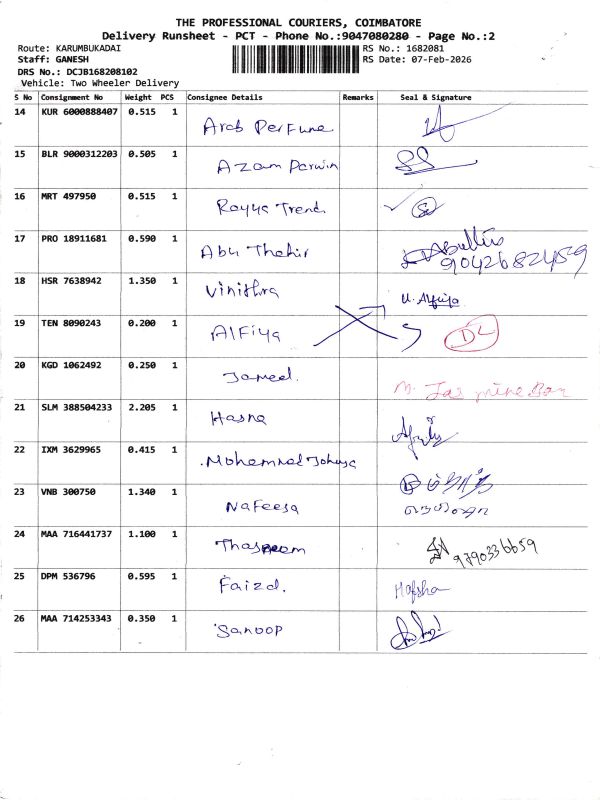 THE PROFESSIONAL COURIERS, COIMBATORE
Delivery Runsheet - PCT - Phone No.:9047080280 - Page No.:2
Route: KARUMBUKADAI RS No.: 1682081
Staff: GANESH RS Date: 07-Feb-2026
DRS No.: DCJB168208102
Vehicle: Two Wheeler Delivery
S No Consignment No Weight PCS Consignee Details Remarks Seal & Signature
14 KUR 6000888407 0.515 1 Arab Perfume
15 BLR 9000312203 0.505 1 Azam Parwin
16 MRT 497950 0.515 1 Rayya Trend
17 PRO 18911681 0.590 1 Abu Thahir 9042682459
18 HSR 7638942 1.350 1 Vinithra U. Alfiya
19 TEN 8090243 0.200 1 Alfiya DL
20 KGD 1062492 0.250 1 Jameel. M. Jas mine Ban
21 SLM 388504233 2.205 1 Hasna
22 IXM 3629965 0.415 1 Mohemmed
23 VNB 300750 1.340 1 Nafeesa
24 MAA 716441737 1.100 1 9790336659
25 DPM 536796 0.595 1 Faizal. Hafsha
26 MAA 714253343 0.350 1 Sanoop